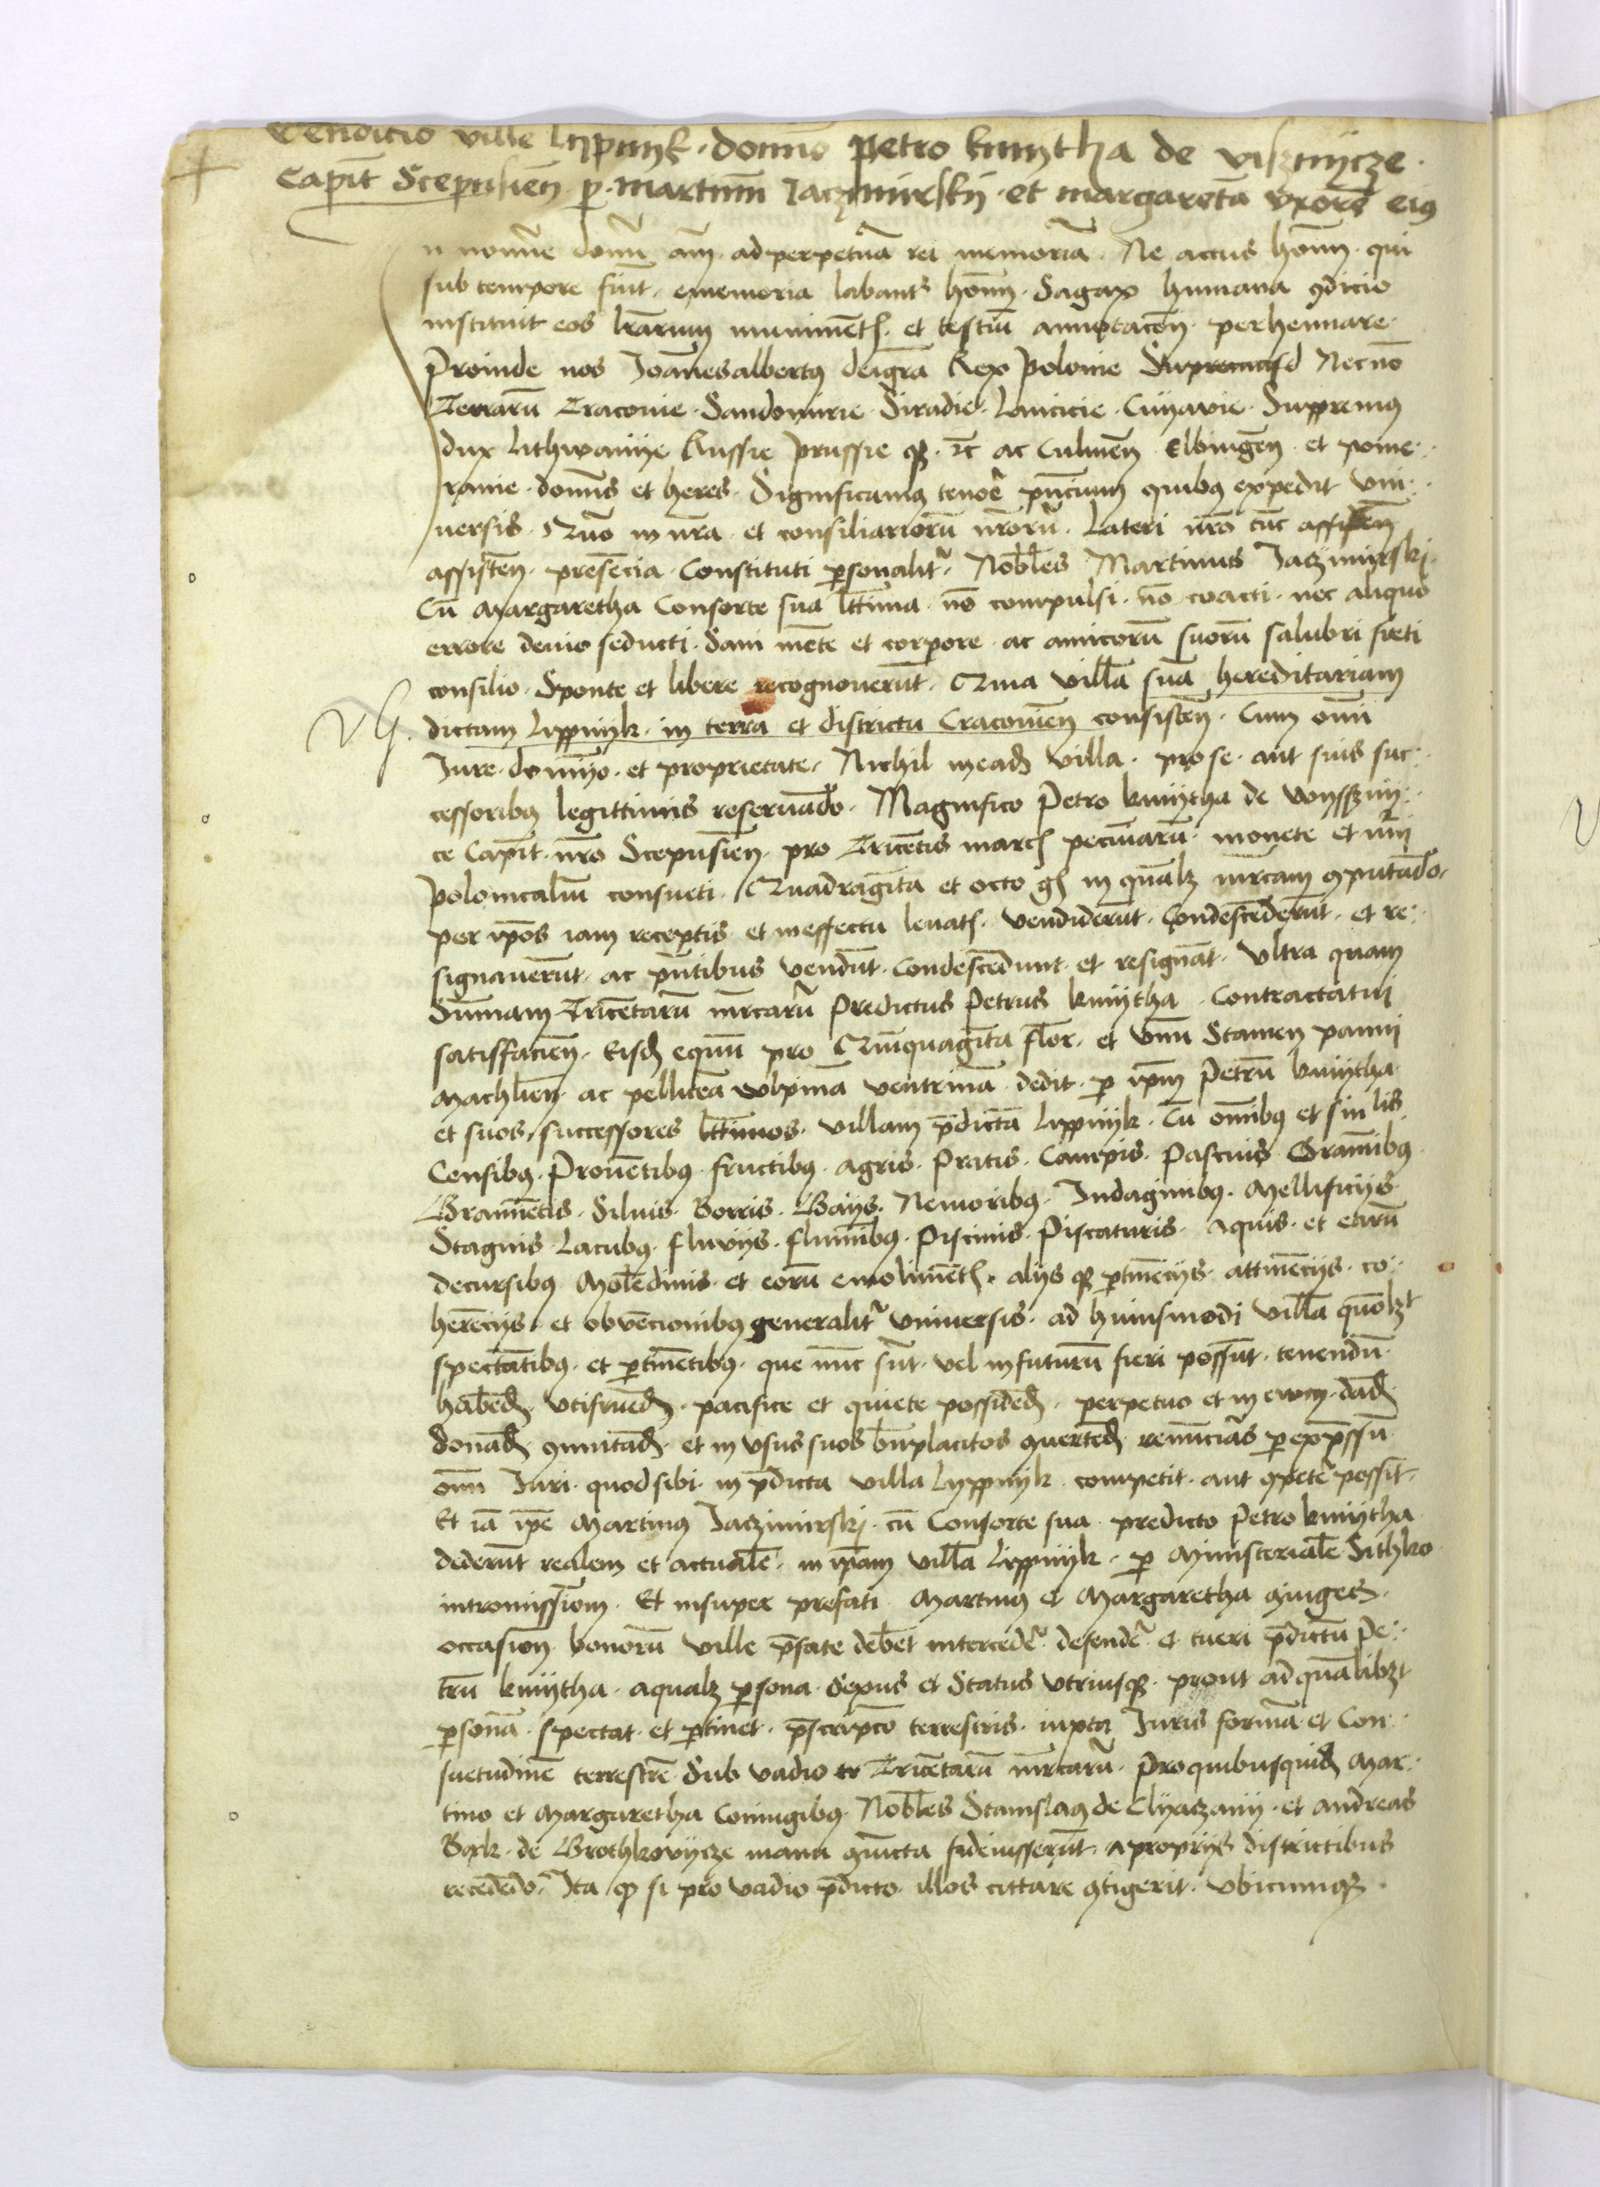 Venditio ville Lypnyk domino Petro kmytha de visznycze
Capit Scepusien p martinu Jaczimirskij et margareta vxore eiq
n nomine domi am ad perpetua rei memoria Ne actus homi qui
sub tempore fiut ememoria labant homi Sagax humana 9dicio
instituit eos lrarum muniment et testiu annotacon perhennare
Proinde nos Joannes albertq deigra Rex Polonie Necno
Terraru Cracouie Sandomirie Siradie Lancicie Cuyavie Suppremq
dux Lithwaniie Russie Prussie q3 rc ac Culmen Elbingen et pome
ranie doms et heres Significamq tenoe pncium quibq expedit vni
uersis Quo in nra et consiliarioru nroru Lateri nro tuc
assisten presencia Constituti psonalit Nobles Martinus Jaczimirskj
Cu Margaretha Consorte sua lttima no compulsi no coacti nec aliquo
errore deuio seducti Sani mete et corpore ac amicoru suoru salubri freti
consilio Sponte et libere recognouerut Quia villa sua hereditariam
dictam Lippnyk in terra et districtu Cracouien consisten Cum omi
Jure dominyo et proprietate Nichil in ead villa pro se aut suis suc
cessoribq legittimis reseruado Magnifico Petro kmytha de vysszny
ce Capit nro Scepusien pro Tricentis march pecuiaru monete et nui
polonicaliu consueti Quadraginta et octo gs in qualz mrcam 9putado
per ipos iam receptis et in effectu leuats vendiderut Condescederut et re
signauerut ac pntibus vendut Condescedunt et resignat Vltra quam
Sumam Tricetaru mrcaru Predictus Petrus kmytha Contractatui
satisfacien Eisd equm pro Quinquaginta flor et vnu Stamen panni
Machlien ac pellicea vulpina ventrina dedit p ipm Petru kmytha
et suos successores lttimos villam pdicta Lippnyk Cu omibq et sin lis
Censibq Prouetibq fructibq agris Pratis Campis Pascuis Gramibq
Gramietis Siluis Borris Gays Nemoribq Indaginibq Mellificiys
Stagnis Lacubq fluviys flumibq Piscinis Piscaturis Aquis et earu
decursibq Molendinis et eoru emoliment alys q3 ptinenciys attinenciys co
herenciys et obvencionibq generalit vniuersis ad huiusmodi villa quolzt
spectatibq et ptinetibq que nuc sut vel infuturu fieri possut tenendu
habed vtifrued pacifice et quiete possided perpetuo et in ewm dad
donad 9mutad et in vsus suos bnplacitos 9uerted renuncias p expssu
omi Juri quod sibi in pdicta villa Lyppnyk competit aut 9pete possit
Et ia ipe Martinus Jaczimirskj cu Consorte sua predicto Petro kmytha
dederut realem et actuale in ipam villa Lippnyk p Ministeriale Sithko
intromissiom Et insuper prefati Martinq et Margaretha 9iuges
occasion bonoru ville pfate debet intercede defende et tueri pdictu Pe
tru kmytha aqualz psona Sexus et Status vtriusq3 prout ad qualibzt
psona spectat et ptinet pscripco terrestris iuxta Juris forma et Con
suetudine terrestre Sub vadio Tricetaru mrcaru Pro quibusquid Mar
tino et Margaretha Coniugibq Nobles Stanislaq de Clyaczany et andreas
Bak de Grothkovycze manu 9iuncta fideiusserut a proprys districtibus
recededo Ita q si pro vadio pdicto illos cittare 9tigerit vbicumq3